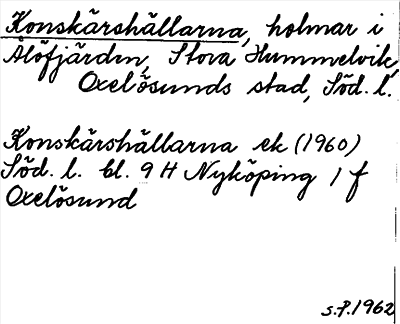 Konskärshällarna, holmar i
Ålöfjärden, Stora Hummelvik,
Oxelösunds stad, Söd. l.
Konskärshällarna ek (1960)
Söd. l. bl. 9 H Nyköping 1 f
Oxelösund
S.P. 1962